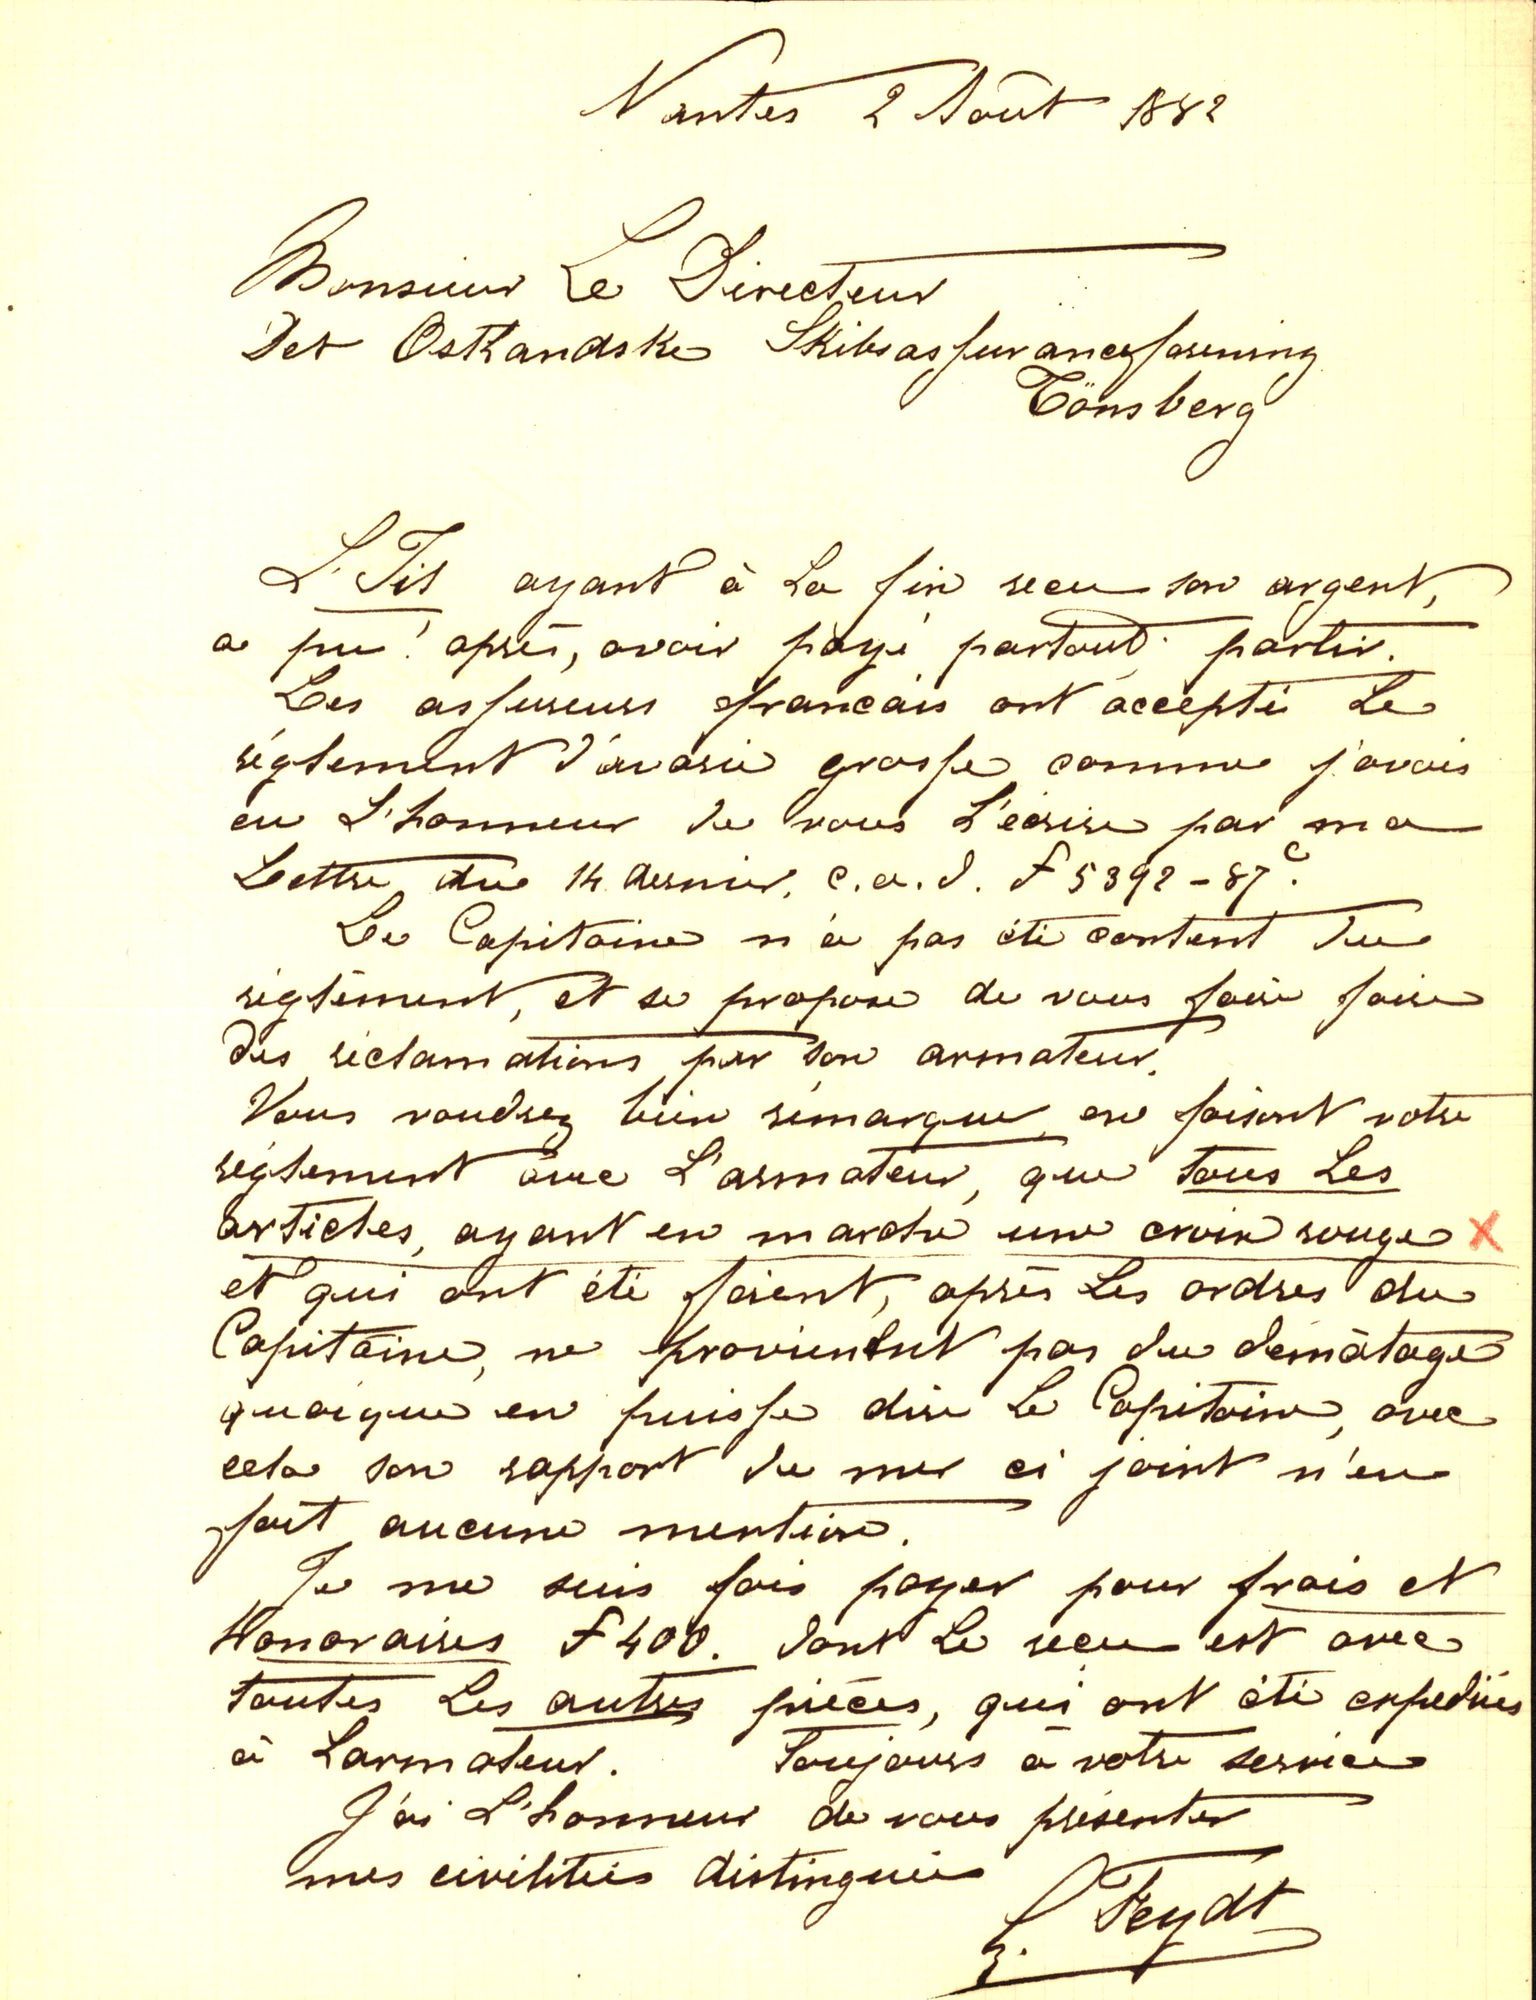 Nantes 2 Août 1882
Monsieur Le Directeur
Det Ostlandske Skibsassuranceforening
Tönsberg
L'Tis ayant à la fin recu son argent,
a pu ! aprés, avoir payé partout partir.
Les assureurs francais ont accepté le
réglement d'avarie grosse comme j'avais
eu l'honneur de vous l'écrire par ma
Lettre du 14 dernier, c.a.d. f 5392 - 87 c.
Le Capitaine n'a pas été content du
réglément, et se propose de vous faire faire
des réclamations par son armateur.
Vous voudrez bien rémarquer en faisant votre
réglement avec L'armateur, que tous les
articles, ayant en marche une croix rouge X
et qui ont été faient, aprés les ordres du
Capitaine, ne provienent pas du démâtage
quoique en puisse dire le Capitaine, avec
cela son rapport de mer ci joint n'en
fait aucune mention.
Je me suis fais payer pour frais et
Honoraires f 400. dont le recu est avec
toutes les autres piéces, qui ont été expediées
à Larmateur. Toujours à votre service
J'ai L'honneur de vous présenter
mes civilités distinguées
Feydt